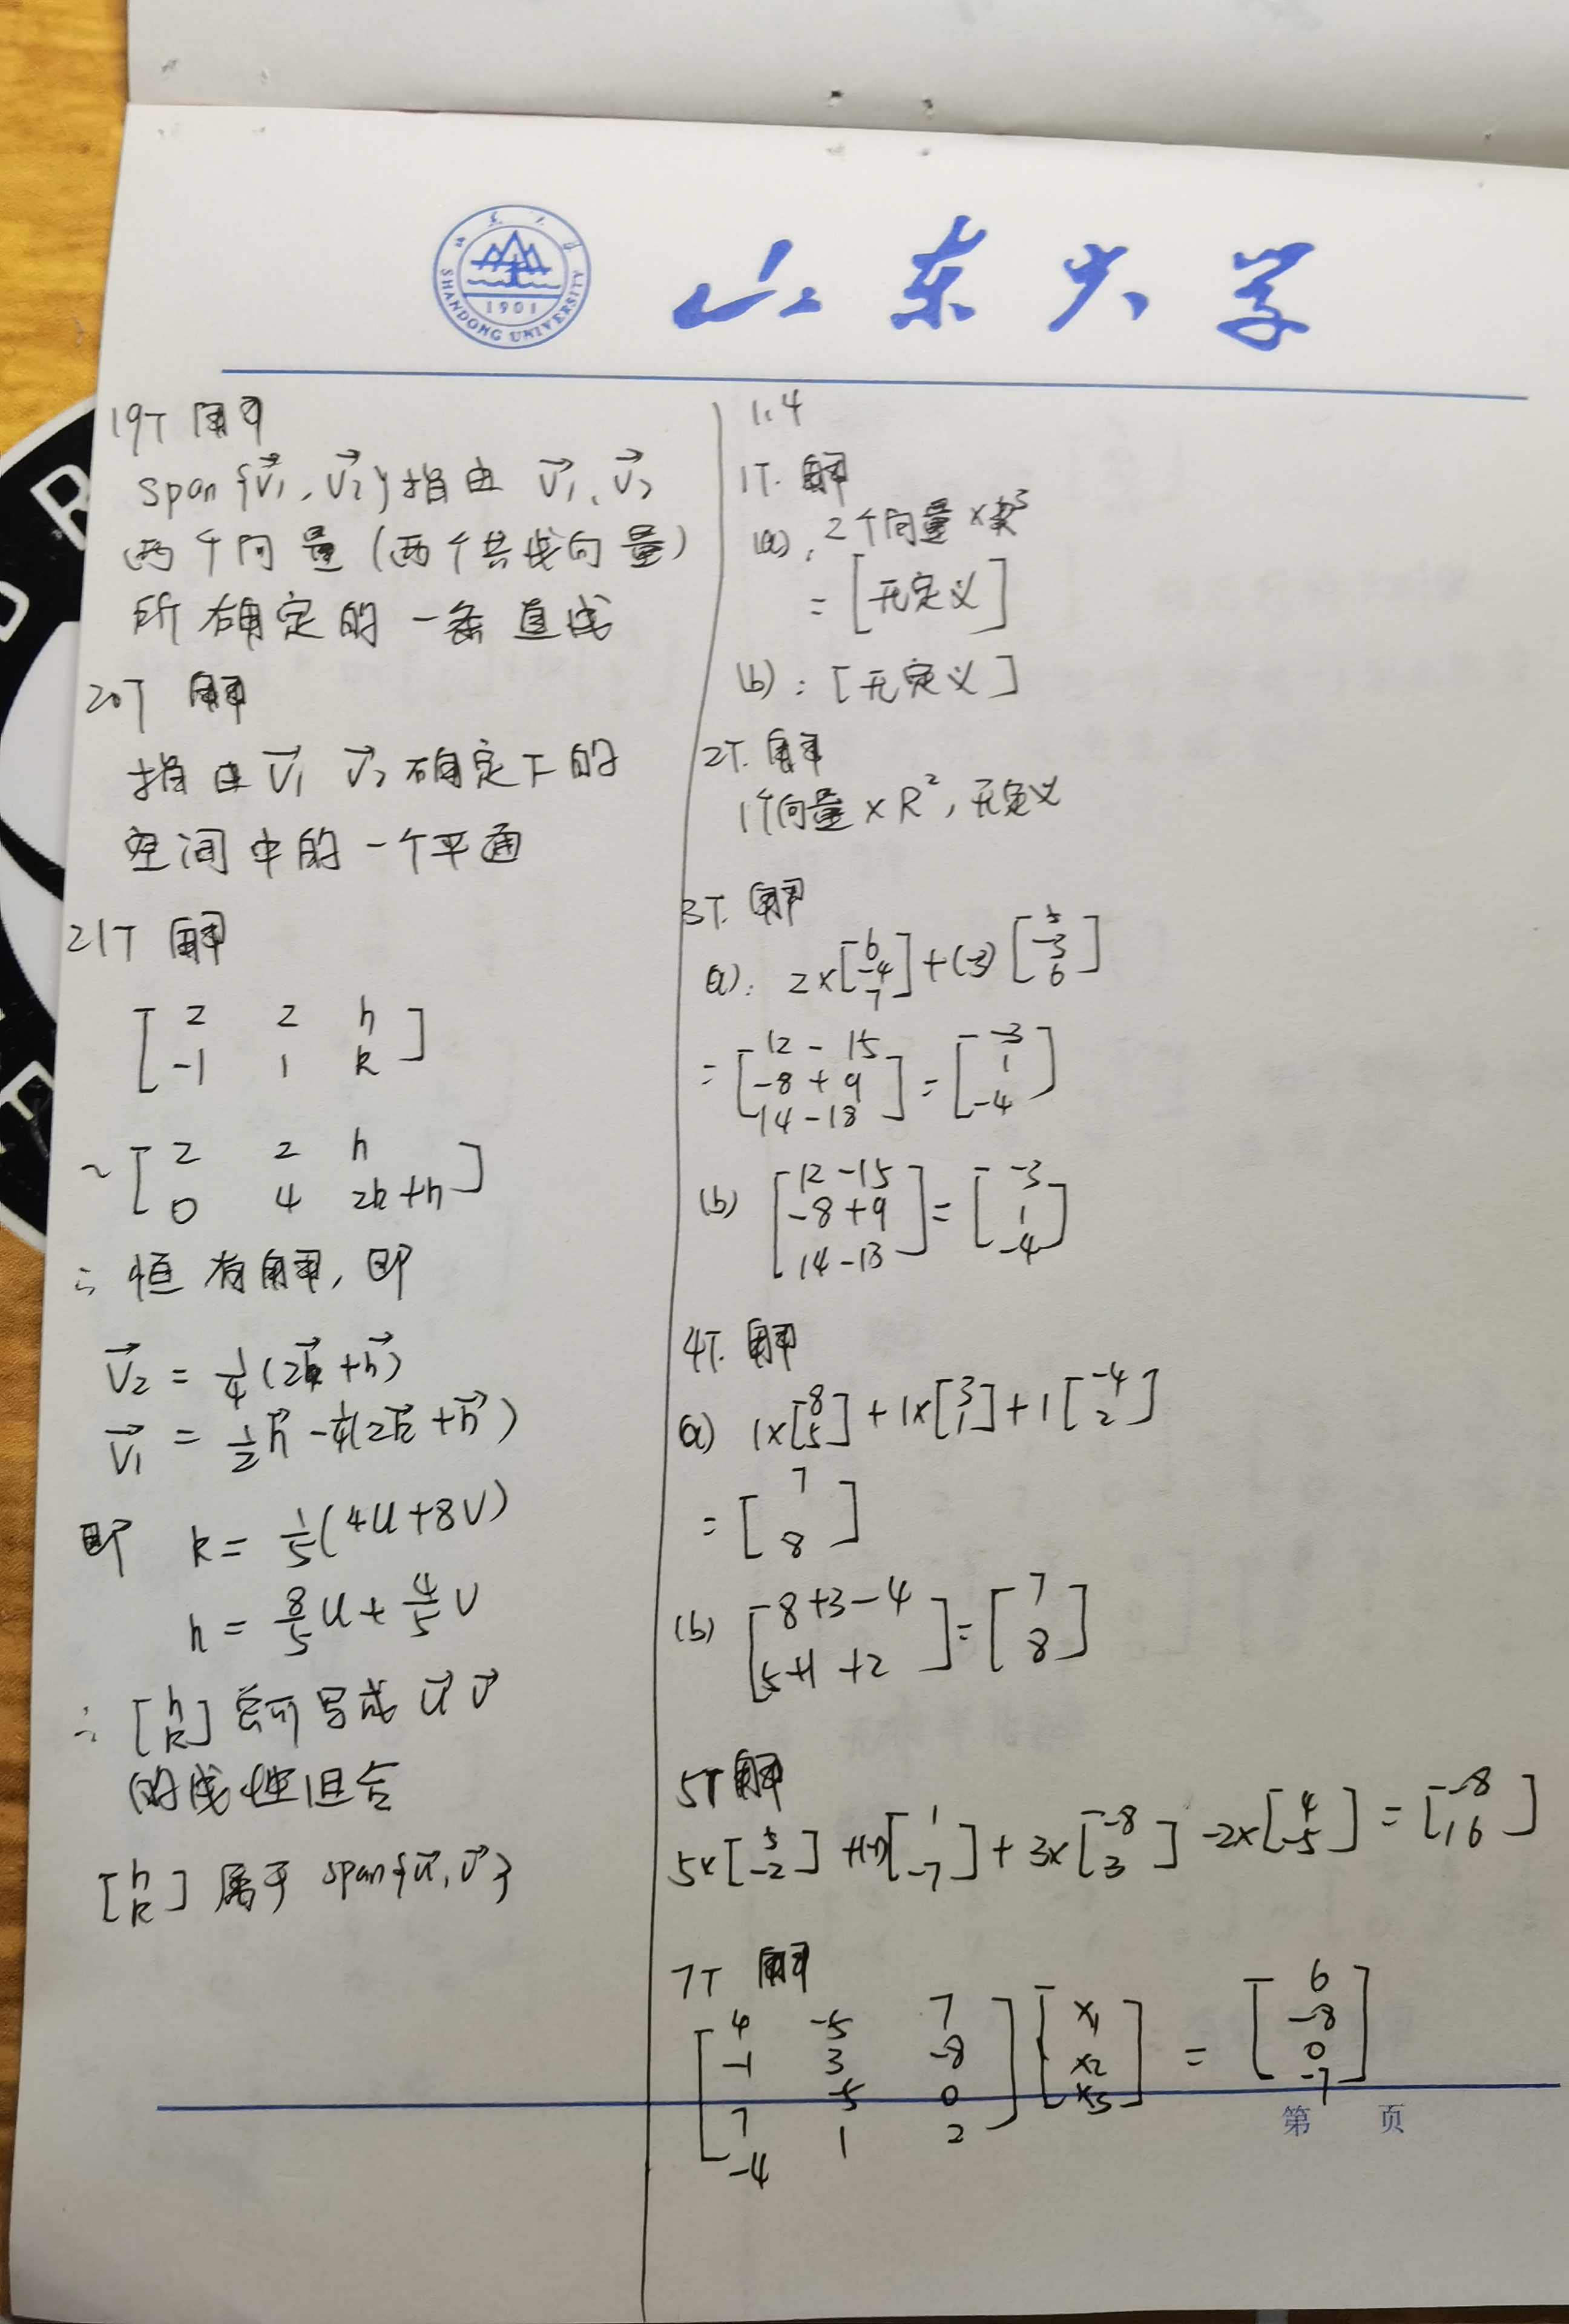 SHANDONG UNIVERSITY
1901
山东大学
19T 解
span{v⃗1, v⃗2}指由 v⃗1、v⃗2
两个向量(两个共线向量)
所确定的一条直线
20T 解
指由 v⃗1 v⃗2 确定下的
空间中的一个平面
21T 解
[ 2 2 h
-1 1 k ]
~ [ 2 2 h
0 4 2k+h ]
∴ 恒有解, 即
v⃗2 = 1/4 (2k⃗+h⃗)
v⃗1 = 1/2 h⃗ - 1/4(2k⃗+h⃗)
即 k = 1/5(4u+8v)
h = 8/5 u + 4/5 v
∴ [h k] 总可写成 u⃗ v⃗
的线性组合
[h k] 属于 span{u⃗, v⃗}
1.4
1T. 解
(a), 2个向量×R³
= [无定义]
(b): [无定义]
2T. 解
1个向量×R², 无定义
3T. 解
(a): 2×[6 -4 7]+(-3)[5 -3 6]
= [12-15
-8+9
14-18] = [-3 1 -4]
(b) [12-15
-8+9
14-18] = [-3 1 -4]
4T. 解
(a) 1×[8 5]+1×[3 1]+1[-4 2]
= [7
8]
(b) [8+3-4
5+1+2] = [7 8]
5T 解
5×[5 -2]+(-1)[1 -7]+3×[-8 3]-2×[4 -5]=[-8 16]
7T 解
[4 -5 7
-1 3 -8
7 -5 0
-4 1 2] [x1 x2 x3] = [6 -8 0 -7]
第 页